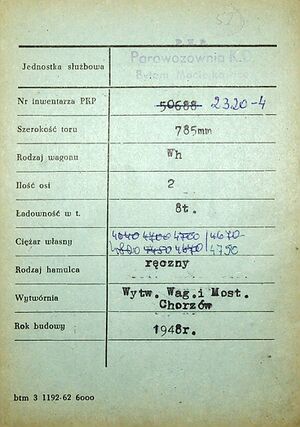 P.K.P.
Parowozownia K.D.
Jednostka służbowa
Bytom
Nr inwentarza PKP 50688 2320-4
Szerokość toru 785mm
Rodzaj wagonu Wh
Ilość osi 2
Ładowność w t. 8t.
Ciężar własny 4670-
4750
Rodzaj hamulca ręczny
Wytwórnia Wytw. Wag.i Most.
Chorzów
Rok budowy 1948r.
btm 3 1192-62 6000